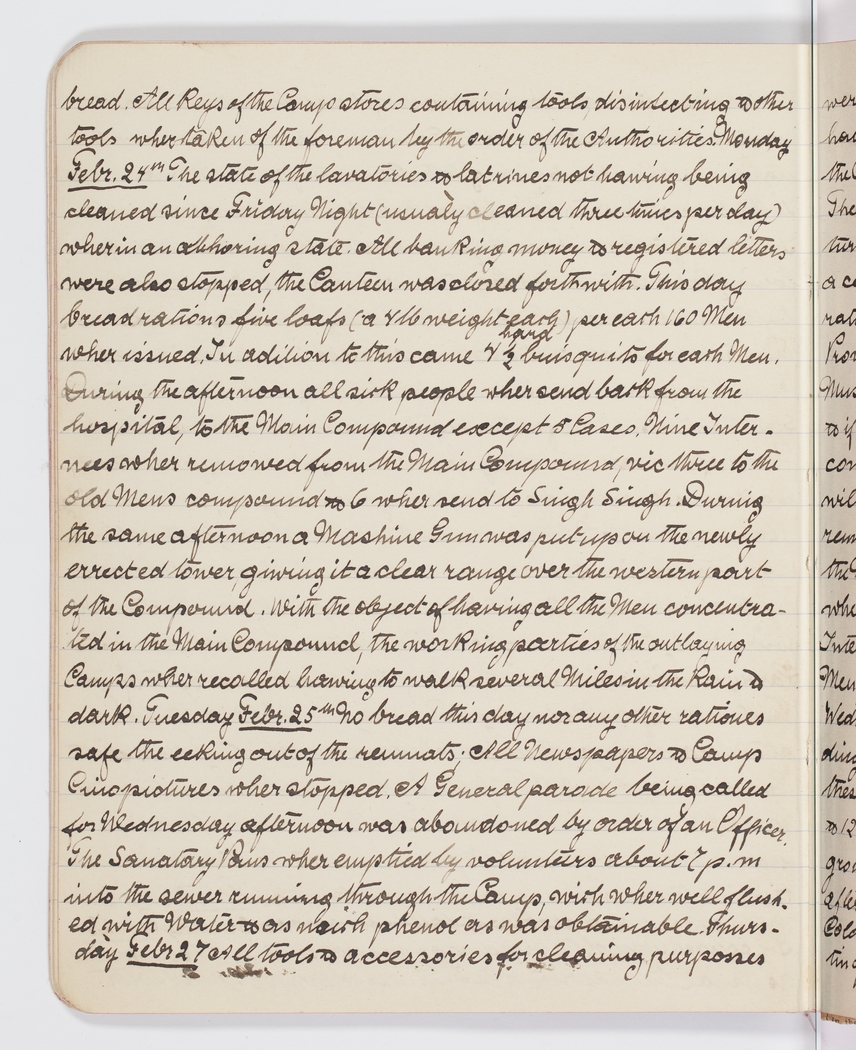 bread. All Keys of the Camp stores containing tools, disinfecting & other
tools wher taken of the foreman by the order of the Authorities. Monday
Febr. 24th The state of the lavatories & latrines not hawing being
cleaned since Friday Night (usualy cleaned three times per day)
wher in an abhoring state. All banking money & registered letters
were also stopped, the Canteen was closed forthwith. This day
bread rations five loafs (a 4 lb weight each) per each 160 Men
hard
wher issued. In adition to this came 4 1/2 buisquits for each Men.
During the afternoon all sick people wher send back from the
hospital, to the Main Compound except 5 Cases. Nine Inter-
nees wher remowed from the Main Compound, vic three to the
old Mens compound & 6 wher send to Singh Singh. During
the same afternoon a Mashine Gun was put up on the newly
errected tower, giwing it a clear range over the western part
of the Compound. With the object of having all the Men concentra-
ted in the Main Compound, the working parties of the outlaying
Camps wher recalled hawing to walk several Miles in the Rain &
dark. Tuesday Febr. 25th No bread this day nor any other rationes
safe the eeking out of the remnats; All Newspapers & Camp
Cinopictures wher stopped. A General parade being called
for Wednesday afternoon was aboundoned by order of an Officer.
The Sanatary Pans wher emptied by volunteers about 7 p.m
into the sewer running through the Camp, wich wher well flush-
ed with Water & as much phenol as was obtainable. Thurs-
day Febr 27 All tools & accessories for cleaning purposses